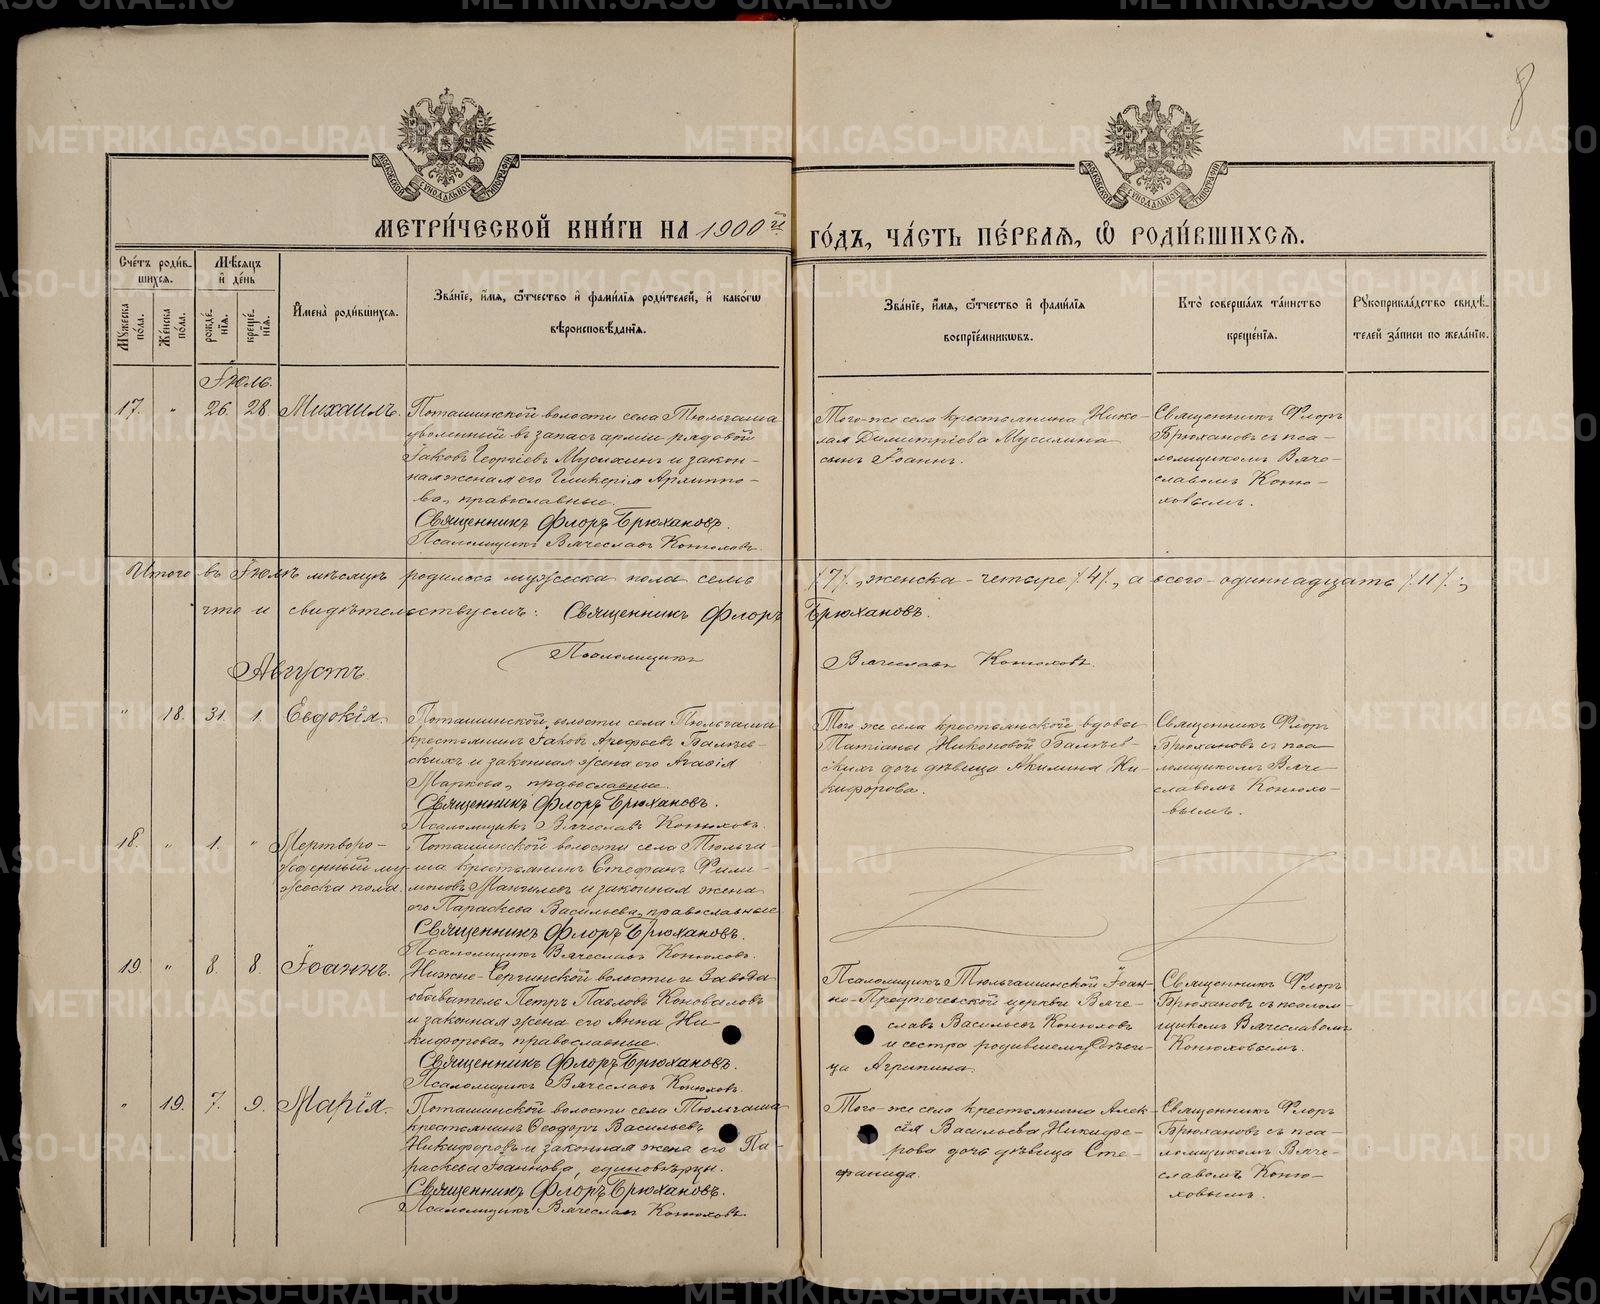 8
МОСКОВСКОЙ СѴНОДАЛЬНОЙ ТИПОГРАФІИ
МОСКОВСКОЙ СѴНОДАЛЬНОЙ ТИПОГРАФІИ
МЕТРИ́ЧЕСКОЙ КНИ́ГИ НА 1900й ГО́ДЪ, ЧА́СТЬ ПЕ́РВАЯ, Ѡ РОДИ́ВШИХСЯ.
Сче́тъ роди́в-
шихся.
Му́жеска по́ла.
Же́нска по́ла.
Мѣ́сяцъ
и де́нь
рожде́-
нїя.
креще́-
нїя.
Имена̀ роди́вшихся.
Зва́нїе, и́мя, ѻ́тчество и фами́лїя роди́телей, и како́гѡ
вѣроисповѣ́данїя.
Зва́нїе, и́мя, ѻ́тчество и фами́лїя
воспрїе́мникѡвъ.
Кто̀ соверша́лъ та́инство
креще́нїя.
Рукоприкла́дство свидѣ́-
телей за́писи по жела́нїю.
Іюль.
17. " 26. 28. Михаилъ.
Поташинской волости села Тюльгаша
уволенный въ запасъ арміи рядовой
Іаковъ Георгіевъ Мусихинъ и закон-
ная жена его Гликерія Архиппо-
ва, православные.
Священникъ Флоръ Брюхановъ.
Псаломщикъ Вячеславъ Конюховъ.
Того-же села крестьянина Нико-
лая Димитріева Мусихина
сынъ Іоаннъ.
Священникъ Флоръ
Брюхановъ съ пса-
ломщикомъ Вяче-
славомъ Коню-
ховымъ.
Итого въ Іюлѣ мѣсяцѣ родилось мужеска пола семь /7/, женска - четыре /4/, а всего - одиннадцать /11/;
что и свидѣтельствуемъ: Священникъ Флоръ Брюхановъ.
Псаломщикъ Вячеславъ Конюховъ.
Августъ
" 18. 31. 1. Евдокія.
Поташинской волости села Тюльгаша
крестьянинъ Іаковъ Агафьевъ
и законная жена его Агафія
Маркова, православные.
Священникъ Флоръ Брюхановъ.
Псаломщикъ Вячеславъ Конюховъ.
Того же села крестьянской вдовы
Татіаны Никоновой
дочь дѣвица Акилина Ни-
кифорова.
Священникъ Флоръ
Брюхановъ съ пса-
ломщикомъ Вяче-
славомъ Конюхо-
вымъ.
18. " 1. " Мертворо-
жденный му-
жеска пола.
Поташинской волости села Тюльга-
ша крестьянинъ Стефанъ Фили-
моновъ и законная жена
его Параскева Васильева, православные
Священникъ Флоръ Брюхановъ.
Псаломщикъ Вячеславъ Конюховъ.
19. " 8. 8. Іоаннъ.
Нижне-Сергинской волости и завода
обыватель Петръ Павловъ Коноваловъ
и законная жена его Анна Ни-
кифорова, православные.
Священникъ Флоръ Брюхановъ.
Псаломщикъ Вячеславъ Конюховъ.
Псаломщикъ Тюльгашинской Іоан-
но-Предтеченской церкви Вяче-
славъ Васильевъ Конюховъ
и сестра
Агрипина.
Священникъ Флоръ
Брюхановъ съ псалом-
щикомъ Вячеславомъ
Конюховымъ.
" 19. 7. 9. Марія.
Поташинской волости села Тюльгаша
крестьянинъ Ѳеодоръ Васильевъ
Никифоровъ и законная жена его Па-
раскева Іоаннова, единовѣрцы.
Священникъ Флоръ Брюхановъ.
Псаломщикъ Вячеславъ Конюховъ.
Того-же села крестьянина Алек-
сія Васильева Никифо-
рова дочь дѣвица Сте-
фанида.
Священникъ Флоръ
Брюхановъ съ пса-
ломщикомъ Вяче-
славомъ Коню-
ховымъ.
METRIKI.GASO-URAL.RU